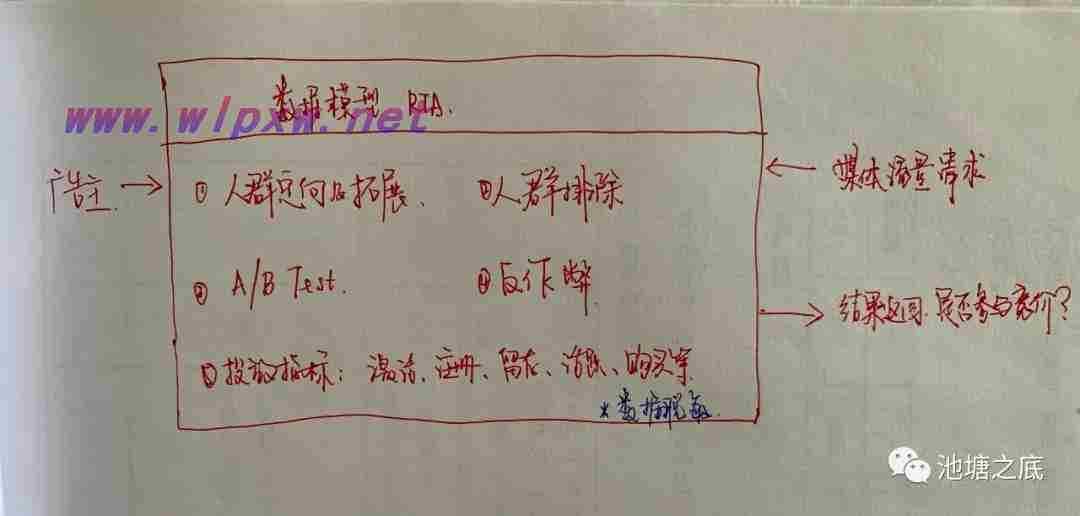 数据模型 RTA.
www.wlpxw.net
广告主
① 人群定向及拓展、 ②人群排除
媒体流量请求
③ A/B Test. ④反作弊
结果返回.是否参与竞价?
⑤投放指标: 激活、注册、留存、活跃、购买等
*数据脱敏.
池塘之底